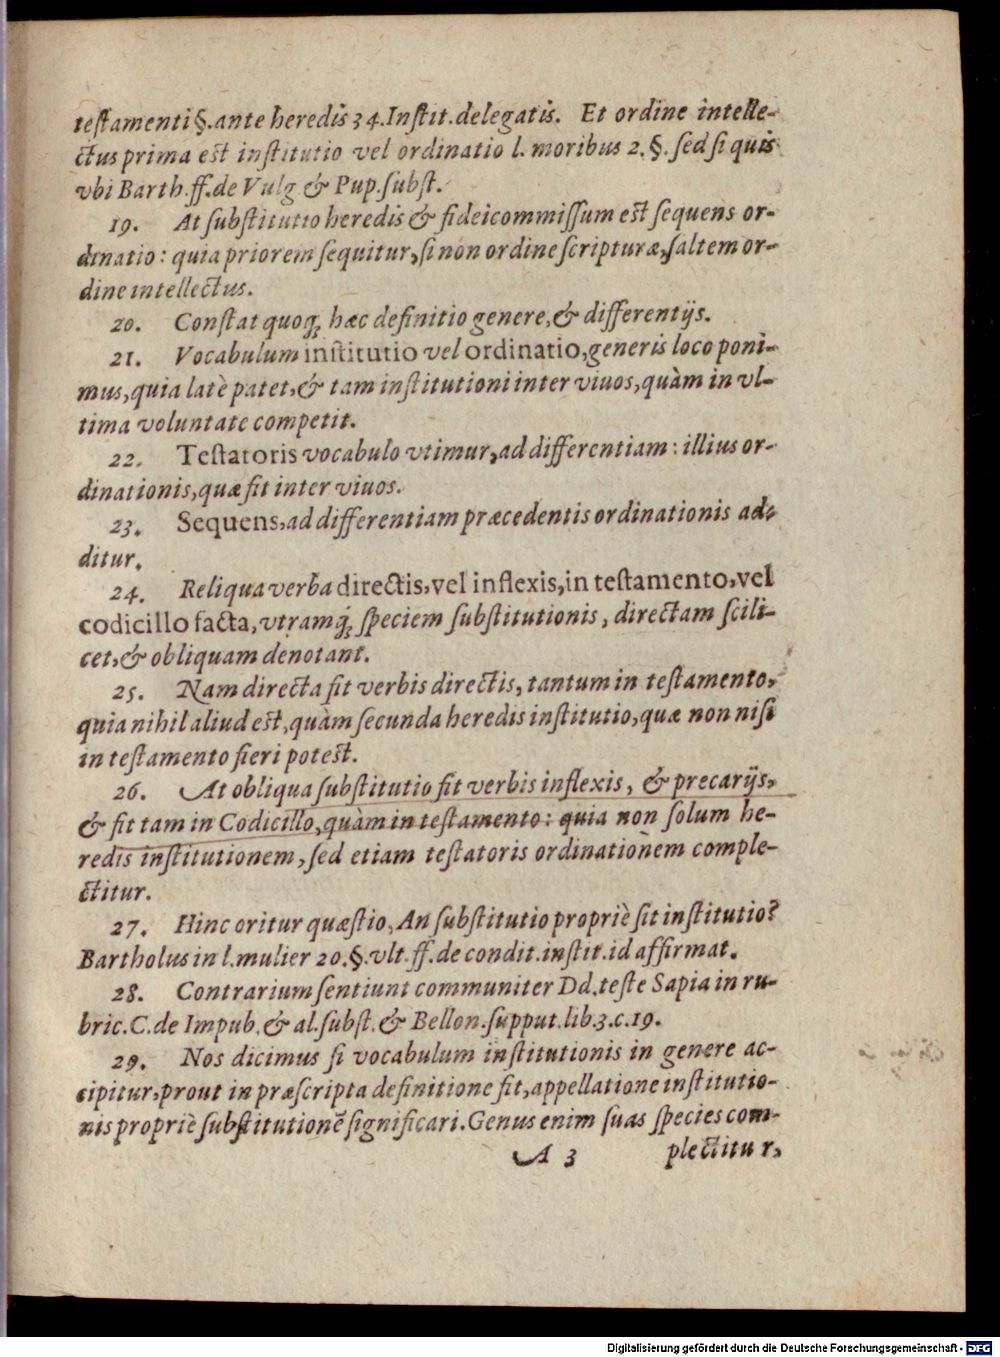 testamenti §. ante heredis 34. Instit. de legatis. Et ordine intelle-
ctus prima est institutio vel ordinatio l. moribus 2. §. sed si quis
vbi Barth. ff. de Vulg & Pup. subst.
19. At substitutio heredis & fideicommissum est sequens or-
dinatio: quia priorem sequitur, si non ordine scripturæ, saltem or-
dine intellectus.
20. Constat quoq; hæc definitio genere, & differentijs.
21. Vocabulum institutio vel ordinatio, generis loco poni-
mus, quia latè patet, & tam institutioni inter viuos, quàm in vl-
tima voluntate competit.
22. Testatoris vocabulo vtimur, ad differentiam: illius or-
dinationis, quæ fit inter viuos.
23. Sequens, ad differentiam præcedentis ordinationis ad-
ditur.
24. Reliqua verba directis, vel inflexis, in testamento, vel
codicillo facta, vtramq; speciem substitutionis, directam scili-
cet, & obliquam denotant.
25. Nam directa fit verbis directis, tantum in testamento,
quia nihil aliud est, quàm secunda heredis institutio, quæ non nisi
in testamento fieri potest.
26. At obliqua substitutio fit verbis inflexis, & precarijs,
& fit tam in Codicillo, quàm in testamento: quia non solum he-
redis institutionem, sed etiam testatoris ordinationem comple-
ctitur.
27. Hinc oritur quæstio, An substitutio propriè sit institutio?
Bartholus in l. mulier 20. §. vlt. ff. de condit. instit. id affirmat.
28. Contrarium sentiunt communiter Dd. teste Sapia in ru-
bric. C. de Impub. & al. subst. & Bellon. supput. lib. 3. c. 19.
29. Nos dicimus si vocabulum institutionis in genere ac-
cipitur, prout in præscripta definitione fit, appellatione institutio-
nis propriè substitutionē significari. Genus enim suas species com-
A 3 plectitur,
Digitalisierung gefördert durch die Deutsche Forschungsgemeinschaft - DFG